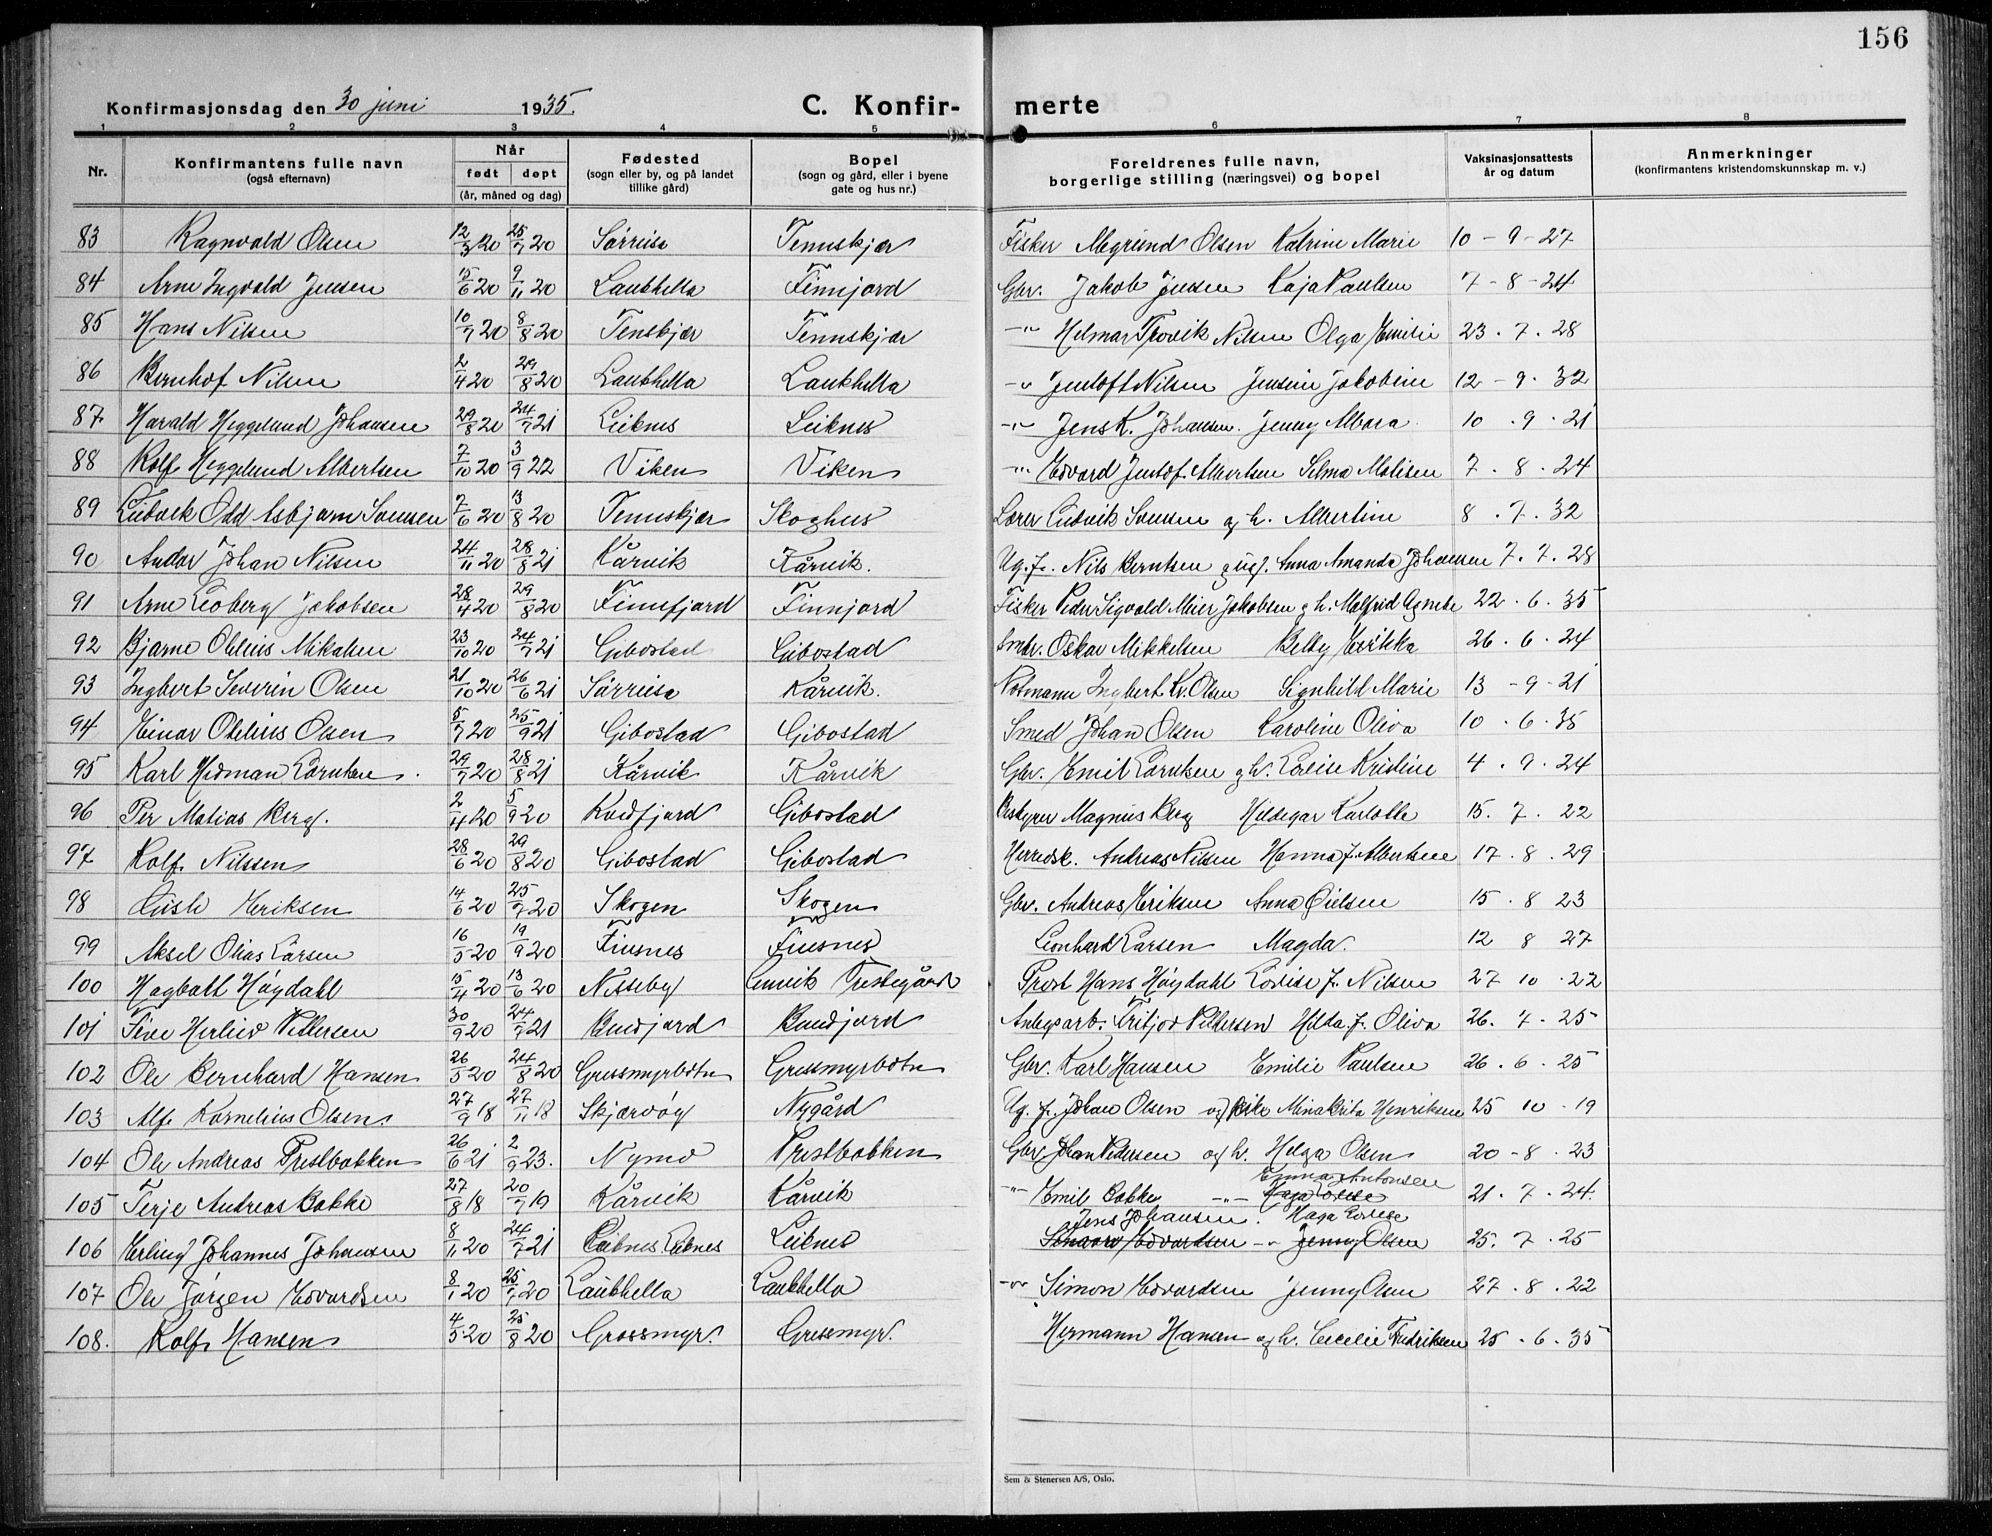 156
Konfirmasjonsdag den 30 juni 1935.
C. Konfir- merte
1 2 3 4 5 6 7 8
Nr. Konfirmantens fulle navn (også efternavn) Når født døpt (år, måned og dag) Fødested (sogn eller by, og på landet tillike gård) Bopel (sogn og gård, eller i byene gate og hus nr.) Foreldrenes fulle navn, borgerlige stilling (næringsvei) og bopel Vaksinasjonsattests år og datum Anmerkninger (konfirmantens kristendomskunnskap m. v.)
83 Ragnvald Olsen 12/3 20 25/7 20 Sørreisa Tennskjær Fisker Olsen Katrine Marie 10 - 9 - 27
84 Arne Ingvald Jensen 15/6 20 9/11 20 Laukhella Finnjord Gbr. Jakob Jensen Kaja Paulsen 7 - 8 - 24
85 Hans Nilsen 10/7 20 8/8 20 Tenskjær Tennskjær -"- Helmar Nilsen Olga Emilie 23 . 7 . 28
86 Bernhof Nilsen 2/4 20 29/8 20 Laukhella Laukhella -" Jentoft Nilsen Jensine Jakobine 12 - 9 . 32
87 Harald Heggelund Johansen 29/8 20 24/7 21 Leiknes Leiknes -"- Jens K. Johansen. Jenny Alvara. 10 . 9 . 21
88 Rolf Heggelund Albertsen 7/10 20 3/9 22 Viken Viken -"- Edvard Jentof. Albertsen Selma Matisen 7 . 8 . 24
89 Odd Asbjørn Svensen 7/6 20 13/8 20 Tennskjær Skoghus Lærer Ludvik Svensen og h. Albertine 8 . 7 . 32
90 Andor Johan Nilsen 24/11 20 28/8 21 Kårvik Kårvik. Ug. f. Nils Berntsen g ug. Anna Amanda Johansen 7 . 7 . 28
91 Arne Leoberg Jakobsen 28/4 20 29/8 20 Finnfjord Finnjord Fisker Peder Sigvald Meier Jakobsen g h. Malfrid Agnete 22 . 6 . 35
92 Bjarne Otelius Mikalsen 23/10 20 24/7 21 Gibostad Gibostad Smbr. Oskar Mikkelsen Betsy Erikka 26 . 6 . 24
93 Ingbert Severin Olsen 21/10 20 26/6 21 Sørreisa Kårvik. Notmann Ingbert Kr. Olsen Signhild Marie 13 - 9 - 21
94 Einar Otelius Olsen 5/7 20 25/9 21 Gibostad Gibostad Smed Johan Olsen Karoline Oliva 10 . 6 . 35
95 Karl Hidman Lorntsen. 29/7 20 28/8 21 Kårvik Kårvik Gbr. Emil Lorntsen g h. Lovise Kristine 4 . 9 . 24
96 Per Matias Berg. 2/4 20 5/9 20 Kvæfjord Gibostad Bestyrer Magnus Berg Hildegar Karlotte 15. 7 . 22
97 Rolf Nilssen 28/6 20 29/8 20 Gibostad Gibostad Herredsk. Andreas Nilsen Hanna f. Albertsen 17 . 8 . 29
98 Eriksen 14/6 20 25/7 20 Skogen Skogen Gbr. Andreas Eriksen Anna 15 . 8 23
99 Aksel Olias Larsen 16/5 20 19/9 20 Finsnes Finsnes Leonhard Larsen Magda. 12 8 27
100 Hagbatt Høgdahl 15/4 20 13/6 20 Nesseby Lenvik Prestegård Prost Hans Høgdahl Lovise f. Nilsen 27 10 . 22
101 Herlied Pettersen 30/9 20 24/7 21 Bundjord Bundjord Anlegsarb. Fritjof Pettersen Hilda f. Oliva 26 . 7 . 25
102 Ole Bernhard Hansen 26/5 20 24/8 20 Gressmyrbotn Gressmyrbotn Gbr. Karl Hansen Emilie Paulsen 26 . 6 . 25
103 Alf Kornelius Olsen 27/9 18 27/11 18 Skjærvøy Nygård Ug. f. Johan Olsen og Henriksen 25 10 . 19
104 Ole Andreas Prestbakken 26/6 21 2/9 23. Nymo Prestbakken Gbr Johan Pedersen og h. Helga Olsen 20 - 8 . 23
105 Terje Andreas Bakke 27/8 18 20/7 19 Kårvik Kårvik -"- Emil Bakke -"- Emma Antonsen 21 . 7 . 24.
106 Erling Johannes Johansen 8/11 20 24/7 21 Leiknes Leiknes Leiknes Jens Johansen. Haga Lovise Edvardsen -" Jenny Olsen 25. 7 . 25
107 Ole Jørgen Edvardsen 8/1 20 25/7 20 Laukhella Laukhella -"- Simon Edvardsen Jenny Olsen 27 . 8 . 22
108. Rolf Hansen 4/5 20 25/8 20 Grossmyr. Gressmyr. Hermann Hansen og h. Cecelie Fredriksen 25 . 6 . 35
Sem & Stenersen A/S, Oslo.